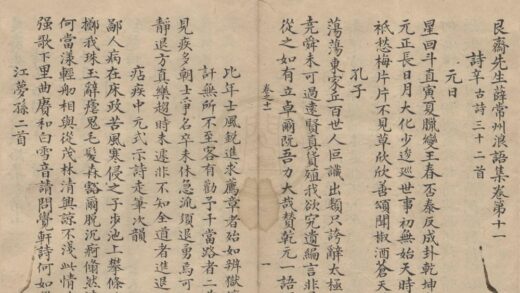 艮齋先生薛常州浪語集卷第十一
詩辛古詩三十二首
元日
星回斗直寅夏臘變王春否泰反成卦乾坤
元正長日月大化少逡巡世事初無始天時
祇愁梅片片不見草欣欣善頌聞椒酒蒼天
孔子
蕩蕩東家丘百世人叵識出類只誇辭太極
堯舜未可過遶賢真貨殖我欲究遺編言非
從之如有立卓爾吾力大哉贊乾元一語
卷之十一
一
比年士風銳進求薦章者始如辨獄
計無所不至客有勸予干當路者二
見疾多朝士爭名草未休急流須退勇焉可
静退方真樂超時未遽非不知全道者進退
痁疾中元式示詩走筆次韻
鄙人病在床政苦風寒侵之子步池上攀條
擲我珠玉辭瘧鬼毛髮森豁爾脫沉痾翛然
何當漾輕船相與從茂林清興諒不淺此情
强歌下里曲賡和白雪音請問覺軒詩何如
江夢孫二首